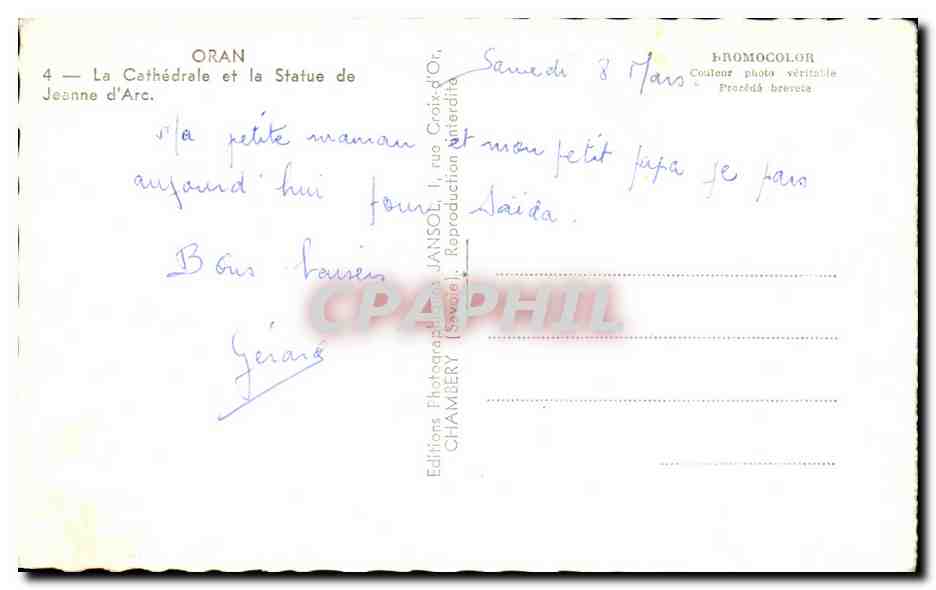 ORAN
4 — La Cathédrale et la Statue de
Jeanne d'Arc.
Samedi 8 Mars.
KROMOCOLOR
Couleur photo véritable
Procédé breveté
Ma petite maman et mon petit papa je pars
aujourd'hui pour Saïda.
Bons baisers
Gérard
Editions Photographiques JANSOL, 1, rue Croix-d'Or,
CHAMBERY (Savoie). Reproduction interdite
CPAPHIL